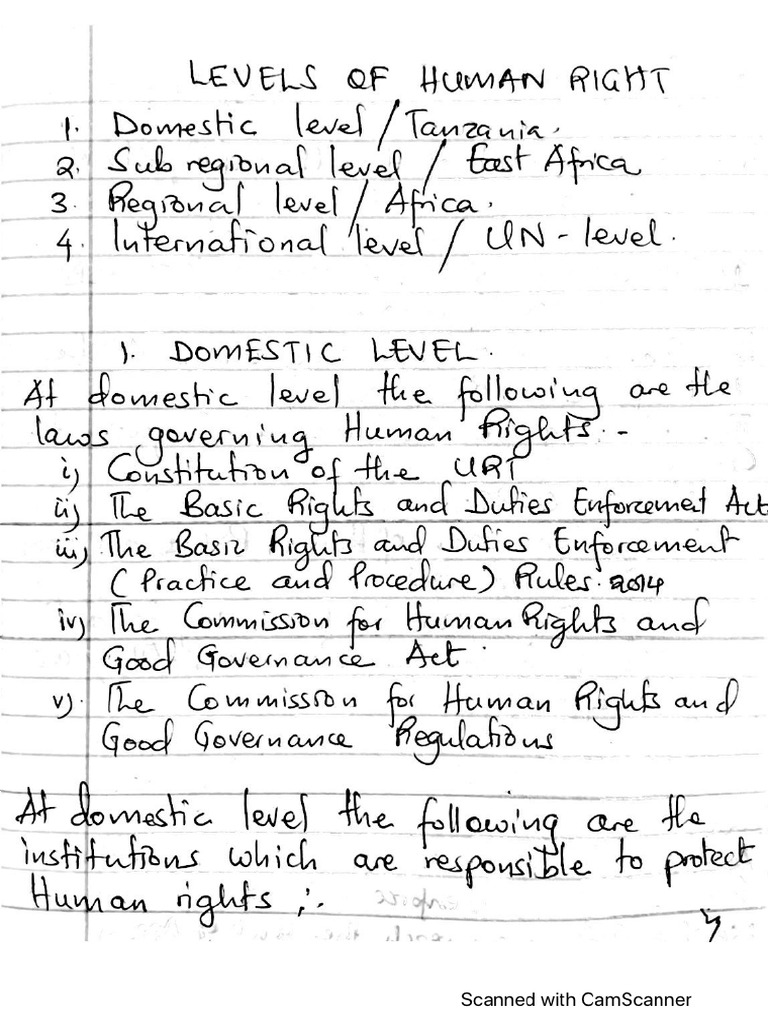 LEVELS OF HUMAN RIGHT
1. Domestic level / Tanzania.
2. Sub regional level / East Africa
3. Regional level / Africa.
4. International level / UN - level.
1. DOMESTIC LEVEL.
At domestic level the following are the
laws governing Human Rights. -
i) Constitution of the URT
ii) The Basic Rights and Duties Enforcemet Act
iii) The Basic Rights and Duties Enforcement
(Practice and Procedure) Rules. 2014
iv) The Commission for Human Rights and
Good Governance Act.
v). The Commission for Human Rights and
Good Governance Regulations
At domestic level the following are the
institutions which are responsible to protect
Human rights ;.
Scanned with CamScanner